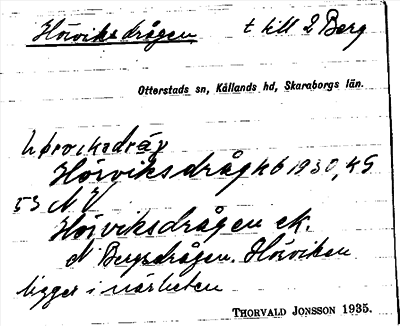 Hörviksdrågen t till 2 Berg
Otterstads sn, Kållands hd, Skaraborgs län.
Hörviksdråg
53 N V
Hörviksdrågen ek.
N Bergsdrågen. Hörviken
ligger i närheten
THORVALD JONSSON 1935.